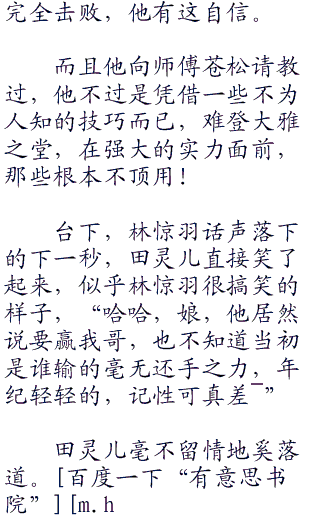 完全击败，他有这自信。
而且他向师傅苍松请教
过，他不过是凭借一些不为
人知的技巧而已，难登大雅
之堂，在强大的实力面前，
那些根本不顶用！
台下，林惊羽话声落下
的下一秒，田灵儿直接笑了
起来，似乎林惊羽很搞笑的
样子，“哈哈，娘，他居然
说要赢我哥，也不知道当初
是谁输的毫无还手之力，年
纪轻轻的，记性可真差¯”
田灵儿毫不留情地奚落
道。[百度一下“有意思书
院”][m.h